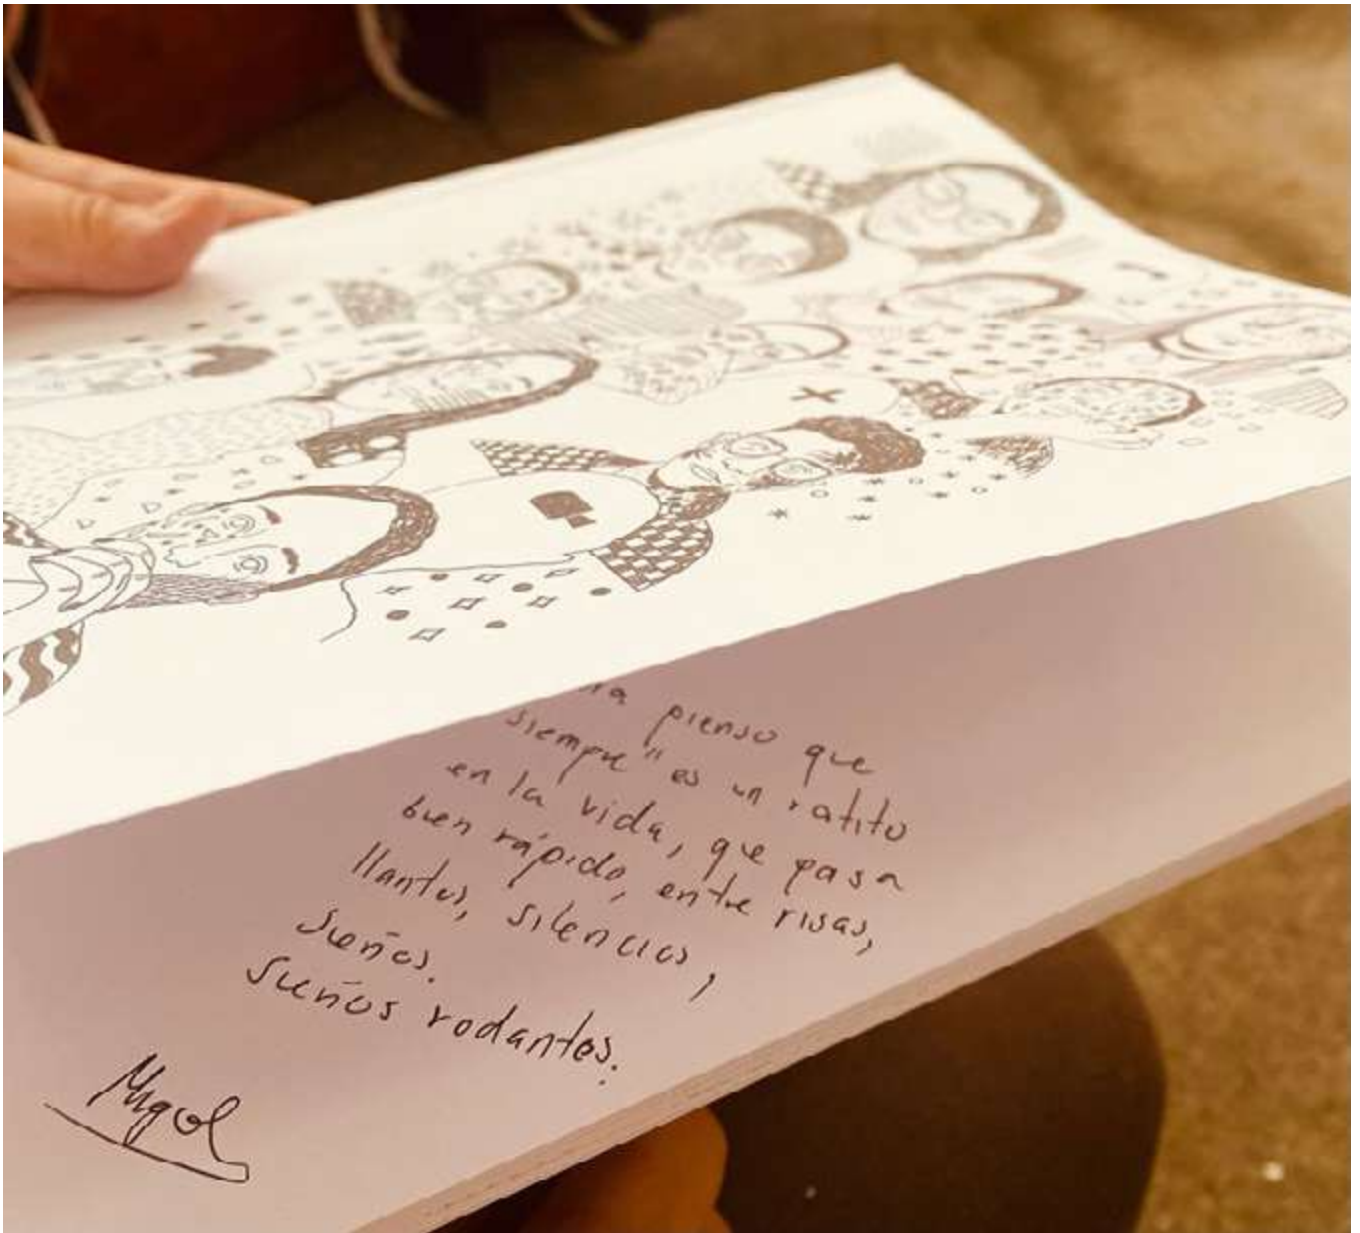 pienso que
siempre" es un ratito
en la vida, que pasa
bien rápido, entre risas,
llantos, silencios,
sueños.
Sueños rodantes.